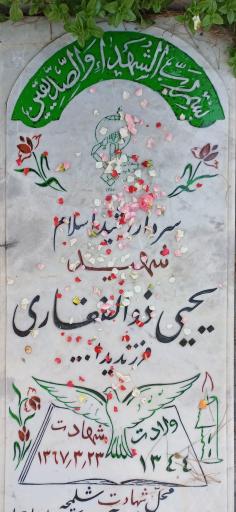 بسم رب الشهداء والصدیقین
سردار رشید اسلام
شهید
یحیی ذوالفقاری
فرزند یدا...
ولادت
۱۳۴۴
شهادت
۱۳۶۷,۳,۲۳
محل شهادت شلمچه